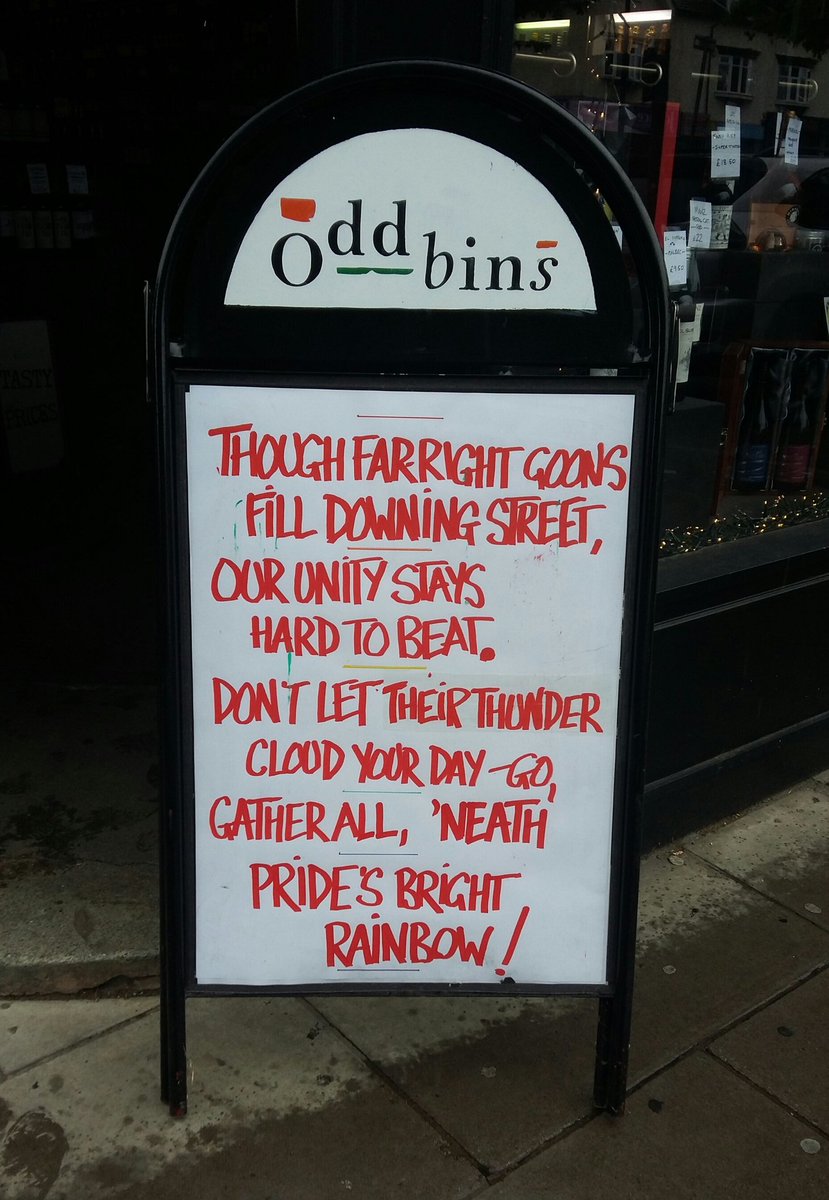 Oddbins
THOUGH FAR-RIGHT GOONS
FILL DOWNING STREET,
OUR UNITY STAYS
HARD TO BEAT.
DON'T LET THEIR THUNDER
CLOUD YOUR DAY - GO,
GATHER ALL, 'NEATH
PRIDE'S BRIGHT
RAINBOW!
TASTY
PRICES
£18.50
£22
£9.50